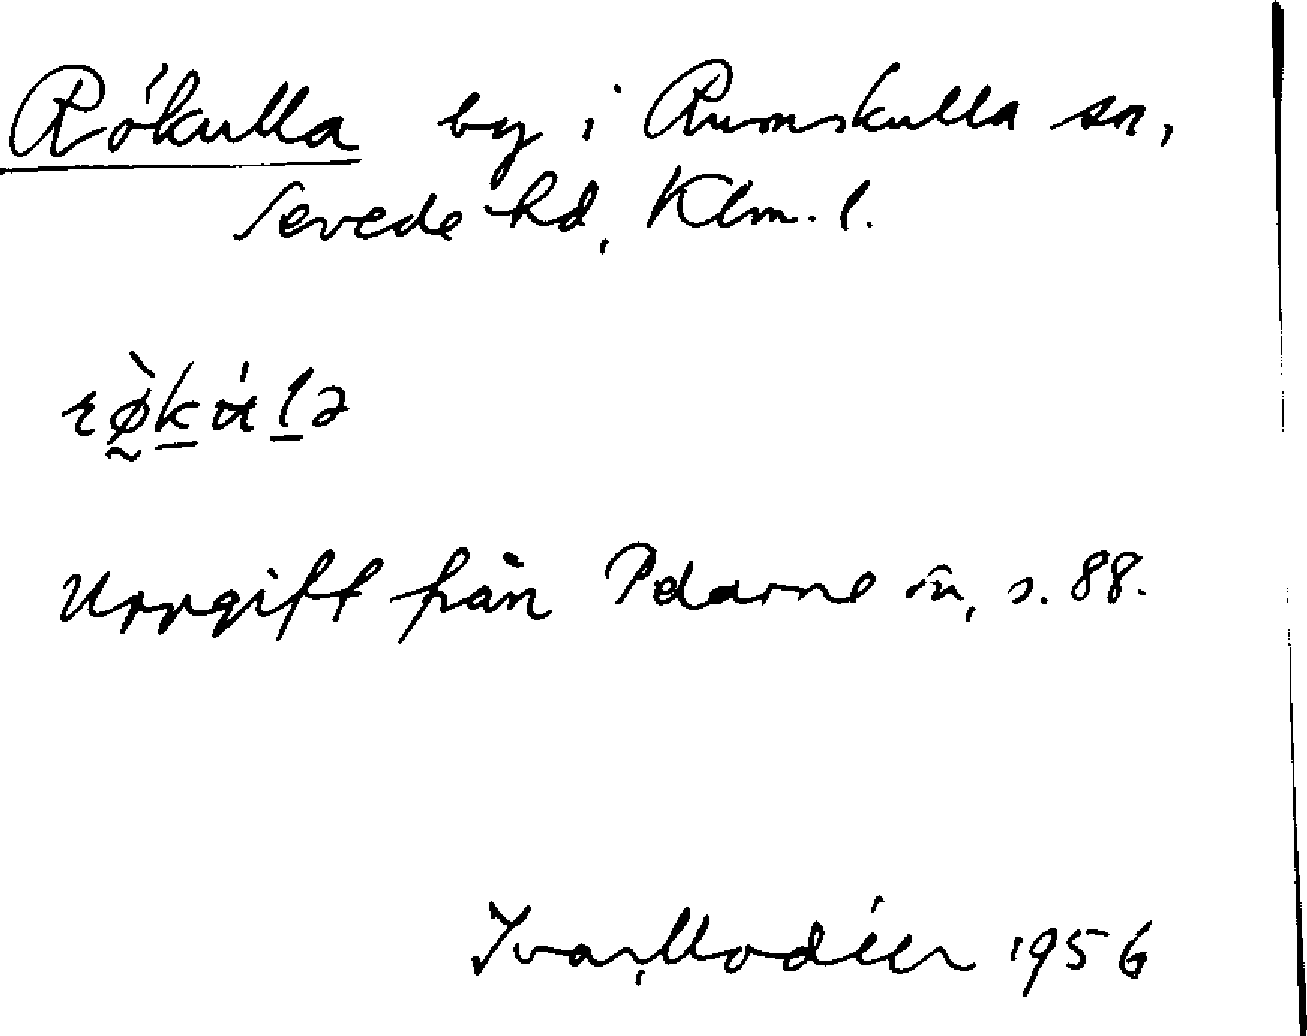 Rökulla by i Rumskulla sn,
Sevede hd, Klm. l.
Uppgift från Pelarne sn, s. 88.
Ivar Modéer 1956